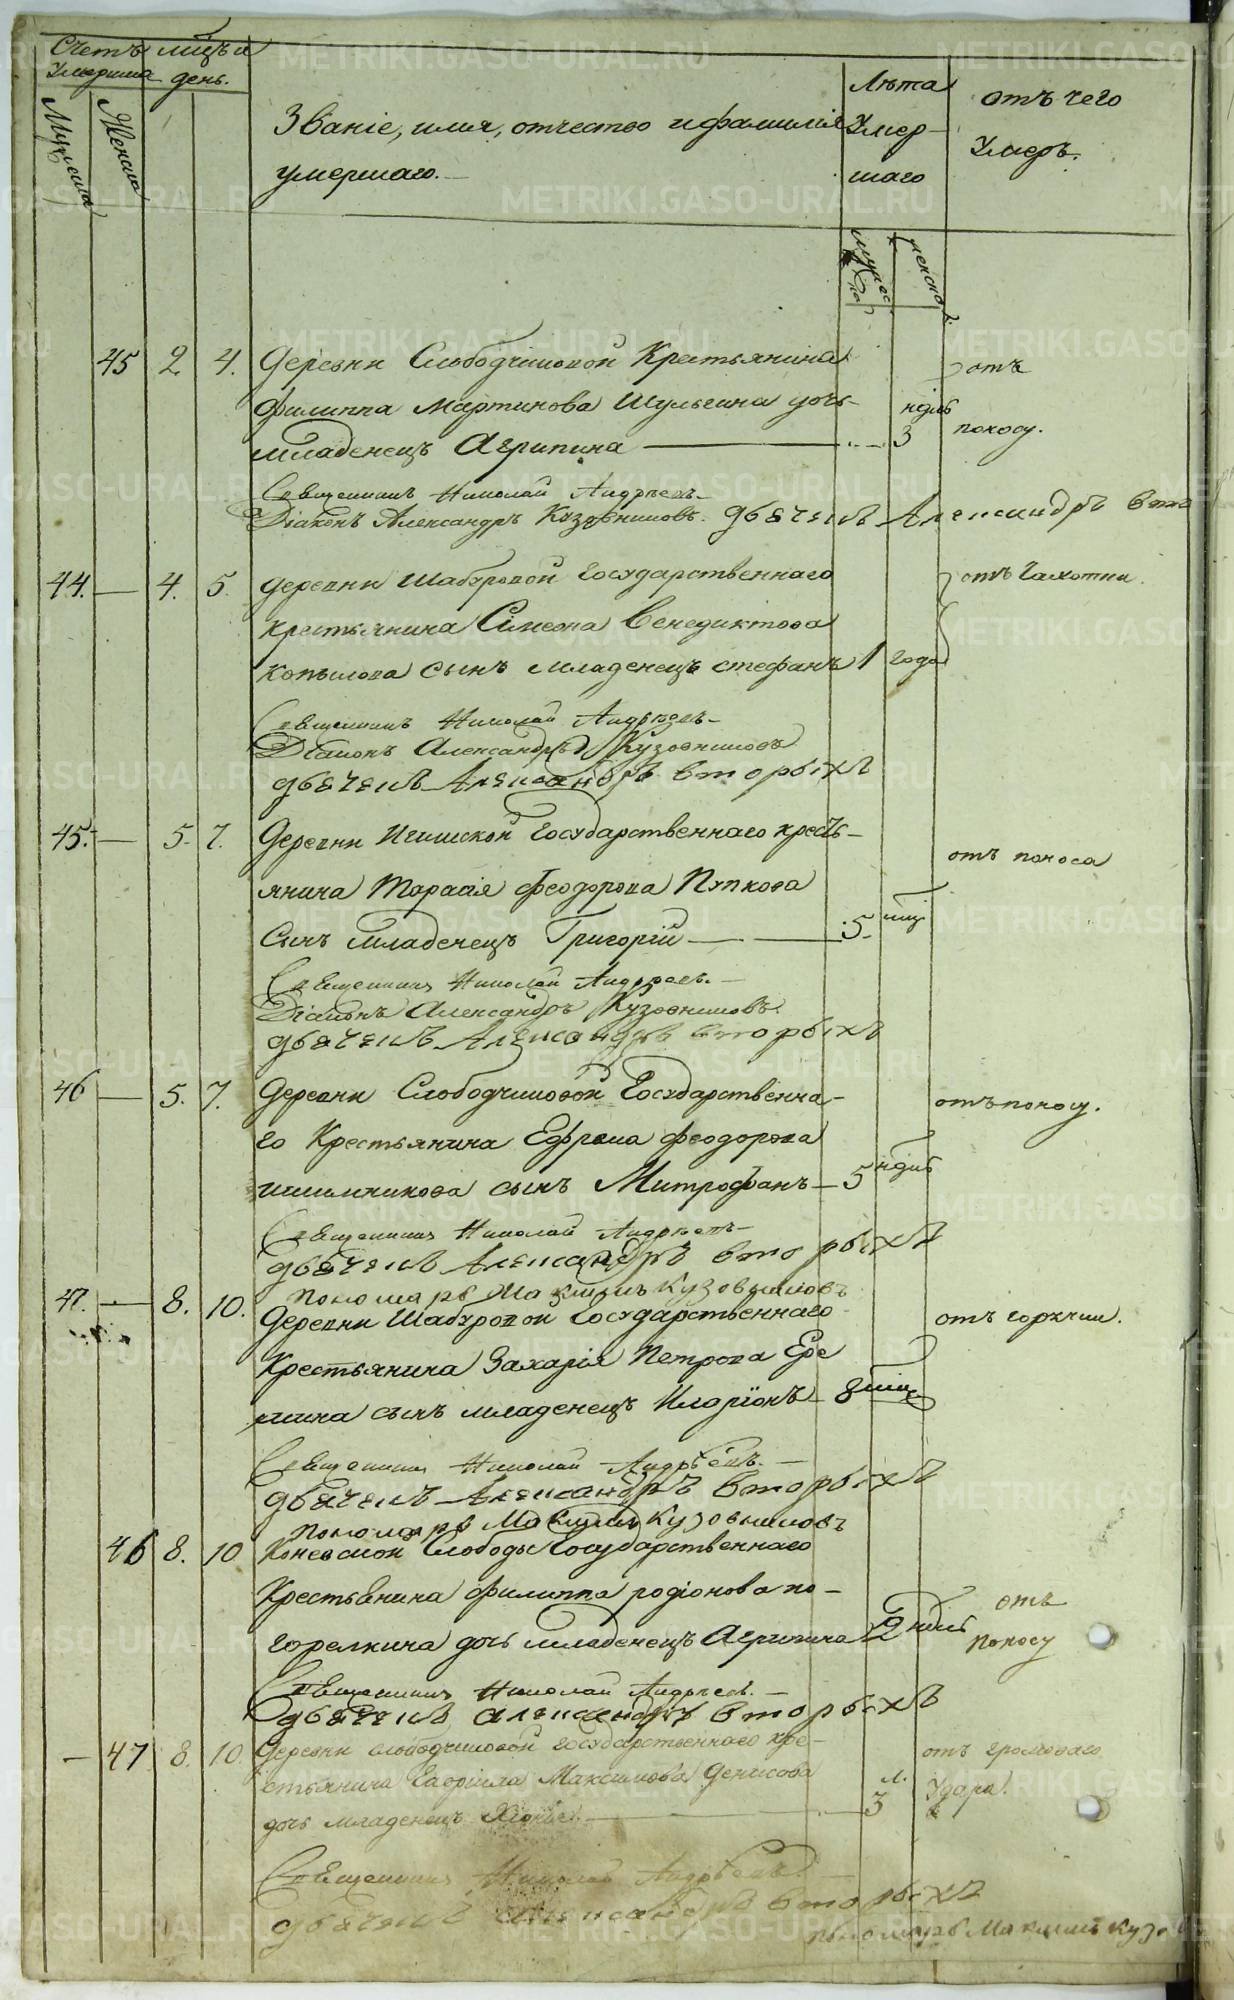 Счетъ умершихъ
мѣсяцъ и день.
Мужеска
Женска
Званіе, имя, отчество и фамилія
умершаго.
Лѣта
Умер-
шаго
отъ чего
Умеръ.
45 2 4. Деревни Слободчиковой Крестьянина
Филиппа Мартинова Шульгина дочь
младенецъ Агрипина — 3 ндль
отъ
поносу.
Священникъ Николай Андреевъ
Діаконъ Александръ Кузовниковъ. Дьячекъ Александръ Вто
44. — 4. 5. деревни Шабуровой Государственнаго
крестьянина Симеона Венедиктова
Копылова сынъ младенецъ Стефанъ 1 года
Священникъ Николай Андреевъ
Діаконъ Александръ Кузовниковъ
дьячекъ Александръ Вторыхъ
45. — 5. 7. Деревни Государственнаго кресть-
янина Тарасія Феодорова Пупкова
Сынъ младенецъ Григорій — 5. мц
отъ поноса
Священникъ Николай Андреевъ.
Діаконъ Александръ Кузовниковъ.
дьячекъ Александръ Вторыхъ
46 — 5. 7. Деревни Слободчиковой Государственна-
го Крестьянина Ефрема Феодорова
сынъ Митрофанъ — 5 ндль
отъ поносу.
Священникъ Николай Андреевъ
дьячекъ Александръ Вторыхъ
пономарь Максимъ Кузовниковъ
47. — 8. 10. Деревни Шабуровой Государственнаго
Крестьянина Захарія Петрова Ере
мина сынъ младенецъ Иларіонъ 8 мц
отъ горячки.
Священникъ Николай Андреевъ.
дьячекъ Александръ Вторыхъ
пономарь Максимъ Кузовниковъ
46 8. 10 Коневской Слободы Государственнаго
Крестьянина Филиппа Родіонова По-
горелкина дочь младенецъ Агрипина 2 ндль
отъ
поносу
Священникъ Николай Андреевъ.
дьячекъ Александръ Вторыхъ
— 47 8. 10. Деревни Слободчиковой государственнаго кре-
стьянина Гавріила Максимова Денисова
дочь младенецъ — 3 л.
отъ громоваго
Удара.
Священникъ Николай Андреевъ.
дьячекъ Александръ Вторыхъ
пономарь Максимъ Кузо
METRIKI.GASO-URAL.RU